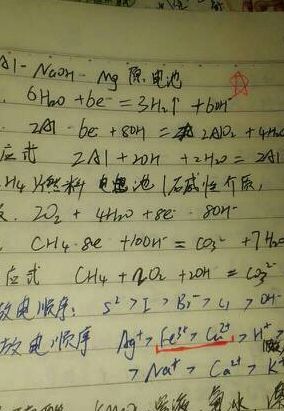 Al - NaOH - Mg 原电池
6H₂O + 6e⁻ = 3H₂↑ + 6OH⁻
2Al - 6e⁻ + 8OH⁻ = 2AlO₂⁻ + 4H₂O
应式 2Al + 2OH⁻ + 2H₂O = 2Al
CH₄ 燃料电池 (碱性介质,
2O₂ + 4H₂O + 8e⁻ 8OH⁻
CH₄ - 8e⁻ + 10OH⁻ = CO₃²⁻ + 7H₂
应式 CH₄ + 2O₂ + 2OH⁻ = CO₃²⁻
放电顺序: S²⁻ > I⁻ > Br⁻ > Cl⁻ > OH⁻
放电顺序 Ag⁺ > Fe³⁺ > Cu²⁺ > H⁺ >
> Na⁺ > Ca²⁺ > K⁺